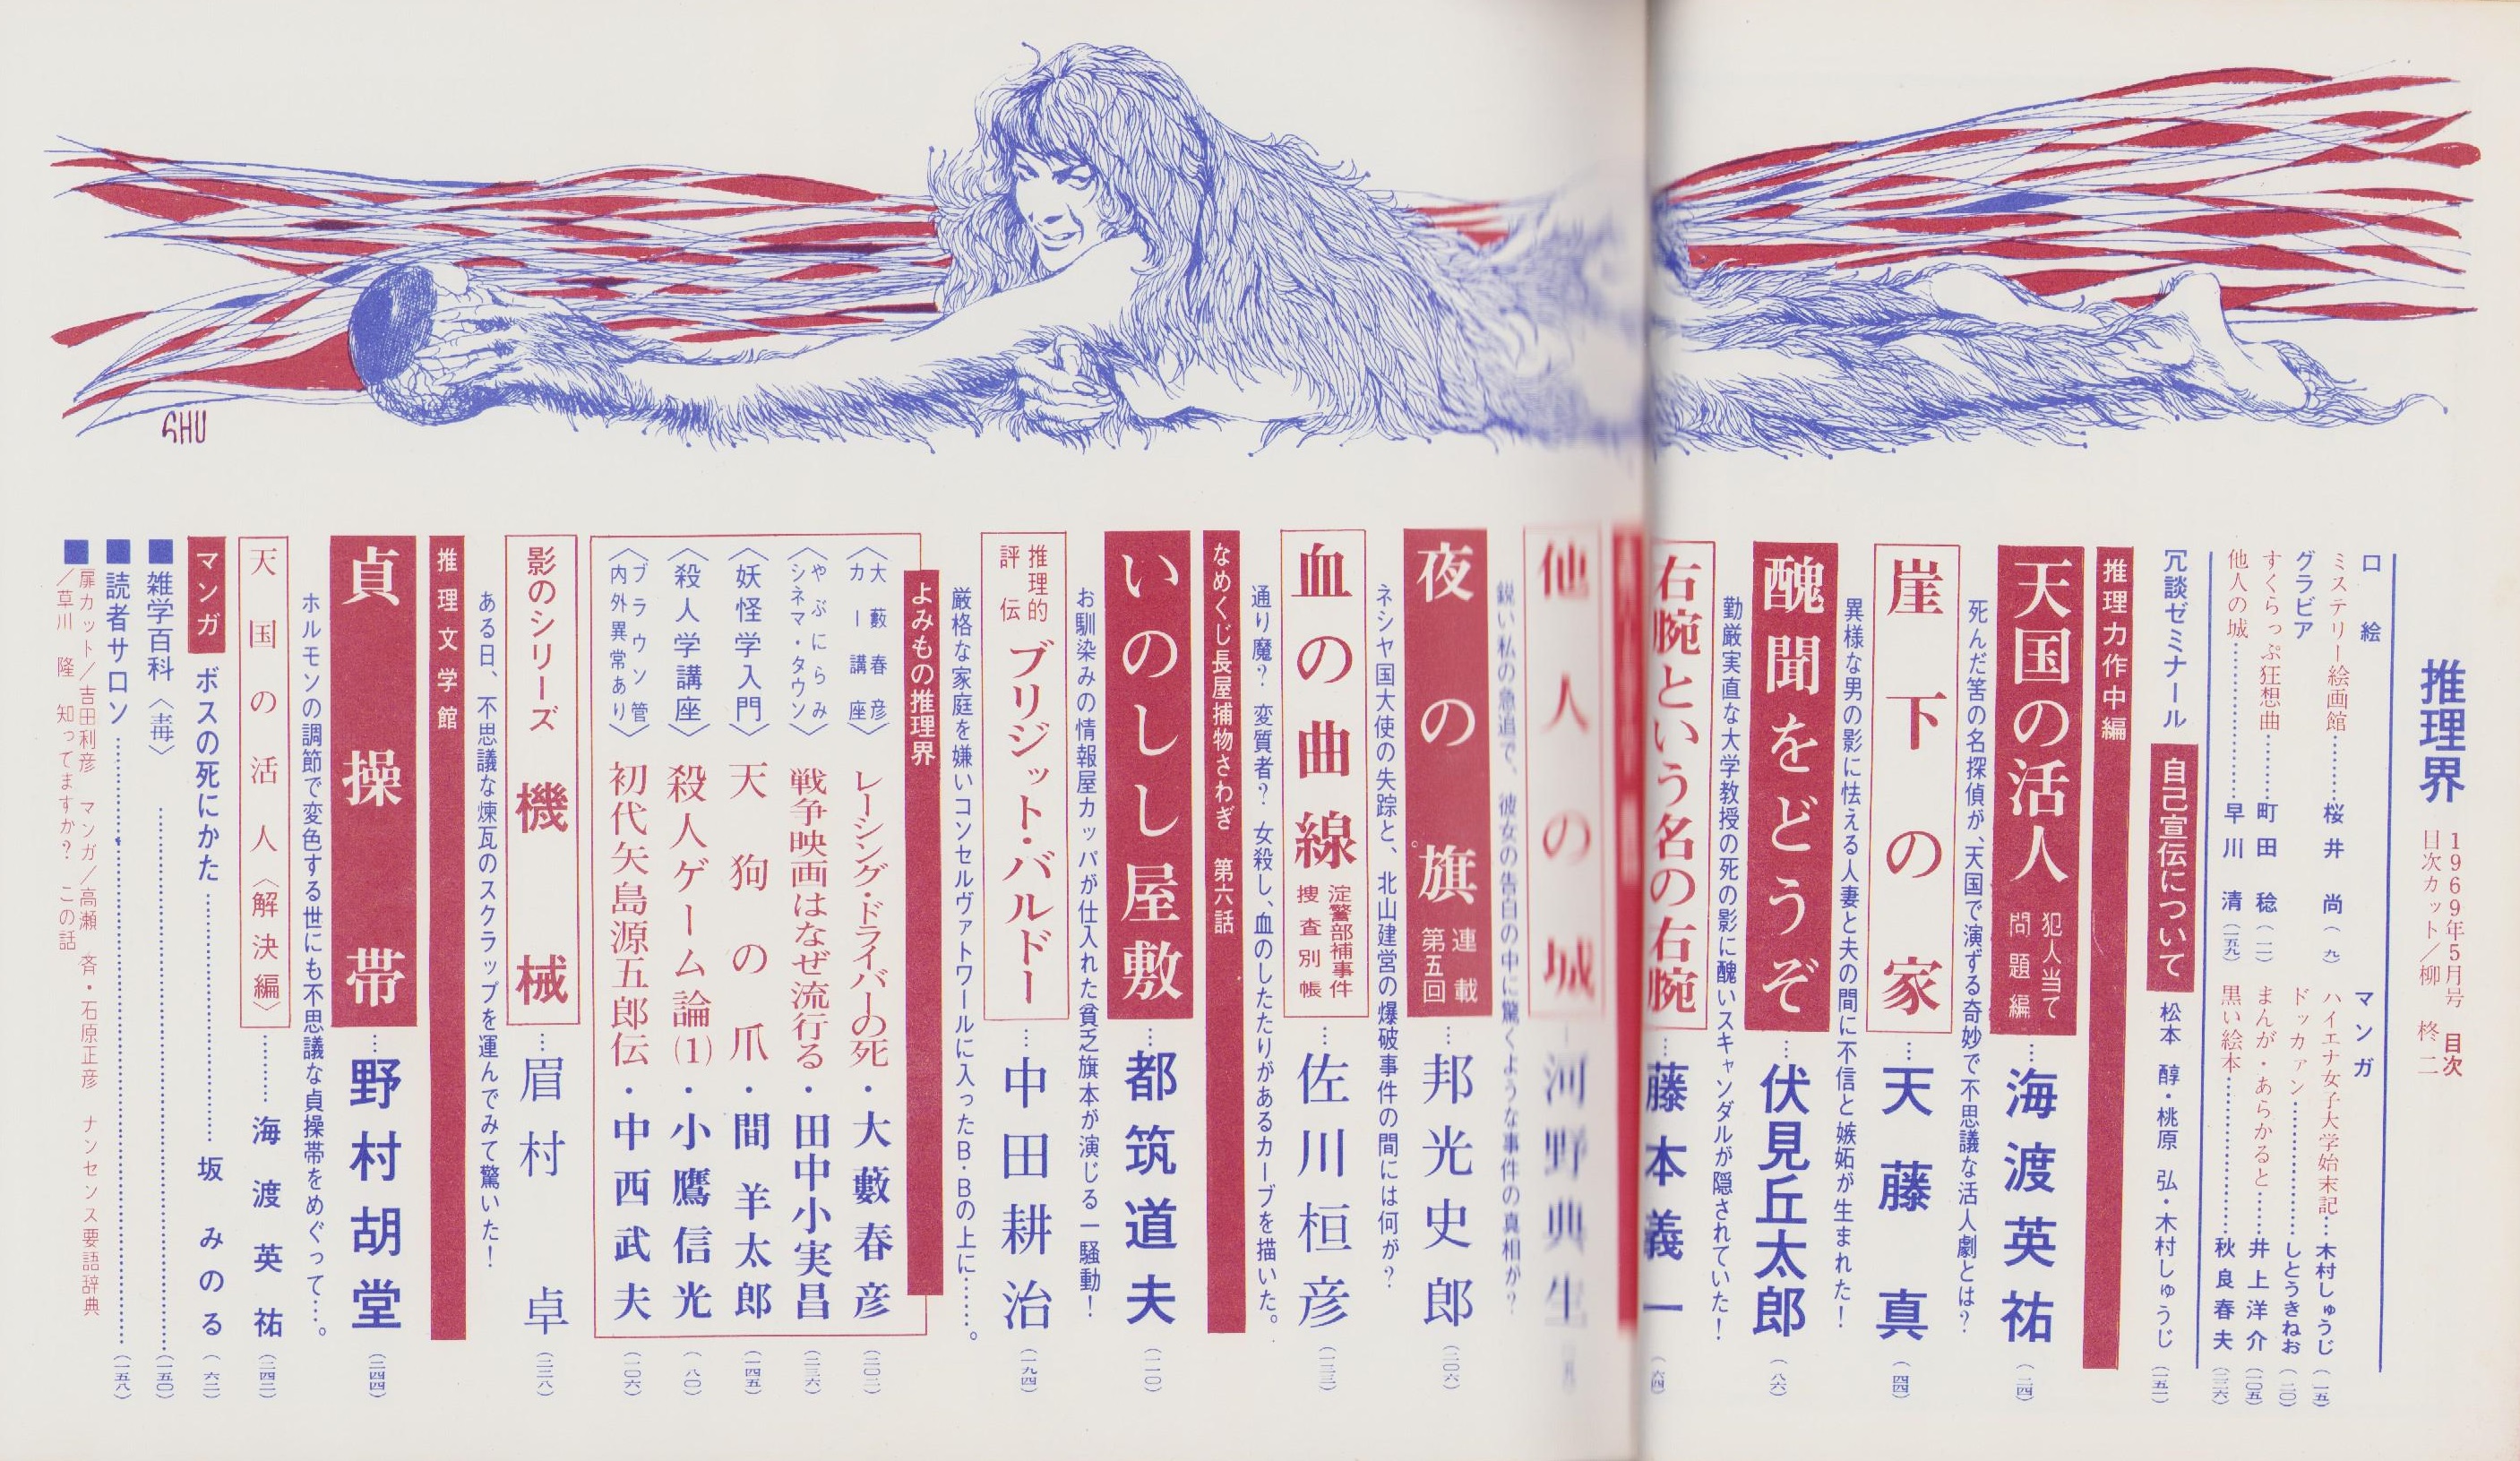 推理界
1969年5月号 目次
目次カット／柳 柊二
口絵
ミステリー絵画館………桜井 尚（九）
グラビア
すくらっぷ狂想曲………町田 稔（一一）
他人の城………早川 清（一五九）
マンガ
ハイエナ女子大学始末記…木村しゅうじ（一五）
ドッカァン………しとうきねお（二〇）
まんが・あらかると……井上洋介（一〇五）
黒い絵本………秋良春夫（二三六）
冗談ゼミナール 自己宣伝について 松本 醇・桃原 弘・木村しゅうじ（一五一）
推理力作中編
天国の活人 犯人当て問題編…海渡英祐（二四）
死んだ筈の名探偵が、天国で演ずる奇妙で不思議な活人劇とは？
崖下の家…天藤 真（四四）
異様な男の影に怯える人妻と夫の間に不信と嫉妬が生まれた！
醜聞をどうぞ…伏見丘太郎（八六）
勤厳実直な大学教授の死の影に醜いスキャンダルが隠されていた！
右腕という名の右腕…藤本義一（六四）
他人の城…河野典生
鋭い私の急追で、彼女の告白の中に驚くような事件の真相が？
夜の旗 連載第五回…邦光史郎（二〇六）
ネシヤ国大使の失踪と、北山建営の爆破事件の間には何が？
血の曲線 淀警部補事件捜査別帳…佐川桓彦（一三三）
通り魔？ 変質者？ 女殺し、血のしたたりがあるカーブを描いた。
なめくじ長屋捕物さわぎ 第六話
いのしし屋敷…都筑道夫（一一〇）
お馴染みの情報屋カッパが仕入れた貧乏旗本が演じる一騒動！
推理的評伝 ブリジット・バルドー…中田耕治（一九四）
厳格な家庭を嫌いコンセルヴァトワールに入ったB・Bの上に……。
よみもの推理界
〈大藪春彦カー講座〉 レーシング・ドライバーの死・大藪春彦（二〇二）
〈やぶにらみシネマ・タウン〉 戦争映画はなぜ流行る・田中小実昌（二三六）
〈妖怪学入門〉 天狗の爪・間 羊太郎（一四五）
〈殺人学講座〉 殺人ゲーム論(1)・小鷹信光（八〇）
〈ブラウン管内外異常あり〉 初代矢島源五郎伝・中西武夫（一〇六）
影のシリーズ 機械…眉村 卓（二二八）
ある日、不思議な煉瓦のスクラップを運んでみて驚いた！
推理文学館
貞操帯…野村胡堂（二四四）
ホルモンの調節で変色する世にも不思議な貞操帯をめぐって…。
天国の活人〈解決編〉………海渡英祐（二四二）
マンガ ボスの死にかた………坂 みのる（六二）
■雑学百科〈毒〉………（一五〇）
■読者サロン………（一五八）
■扉カット／吉田利彦 マンガ／高瀬 斉・石原正彦 ナンセンス要語辞典
／草川 隆 知ってますか？ この話
SHU